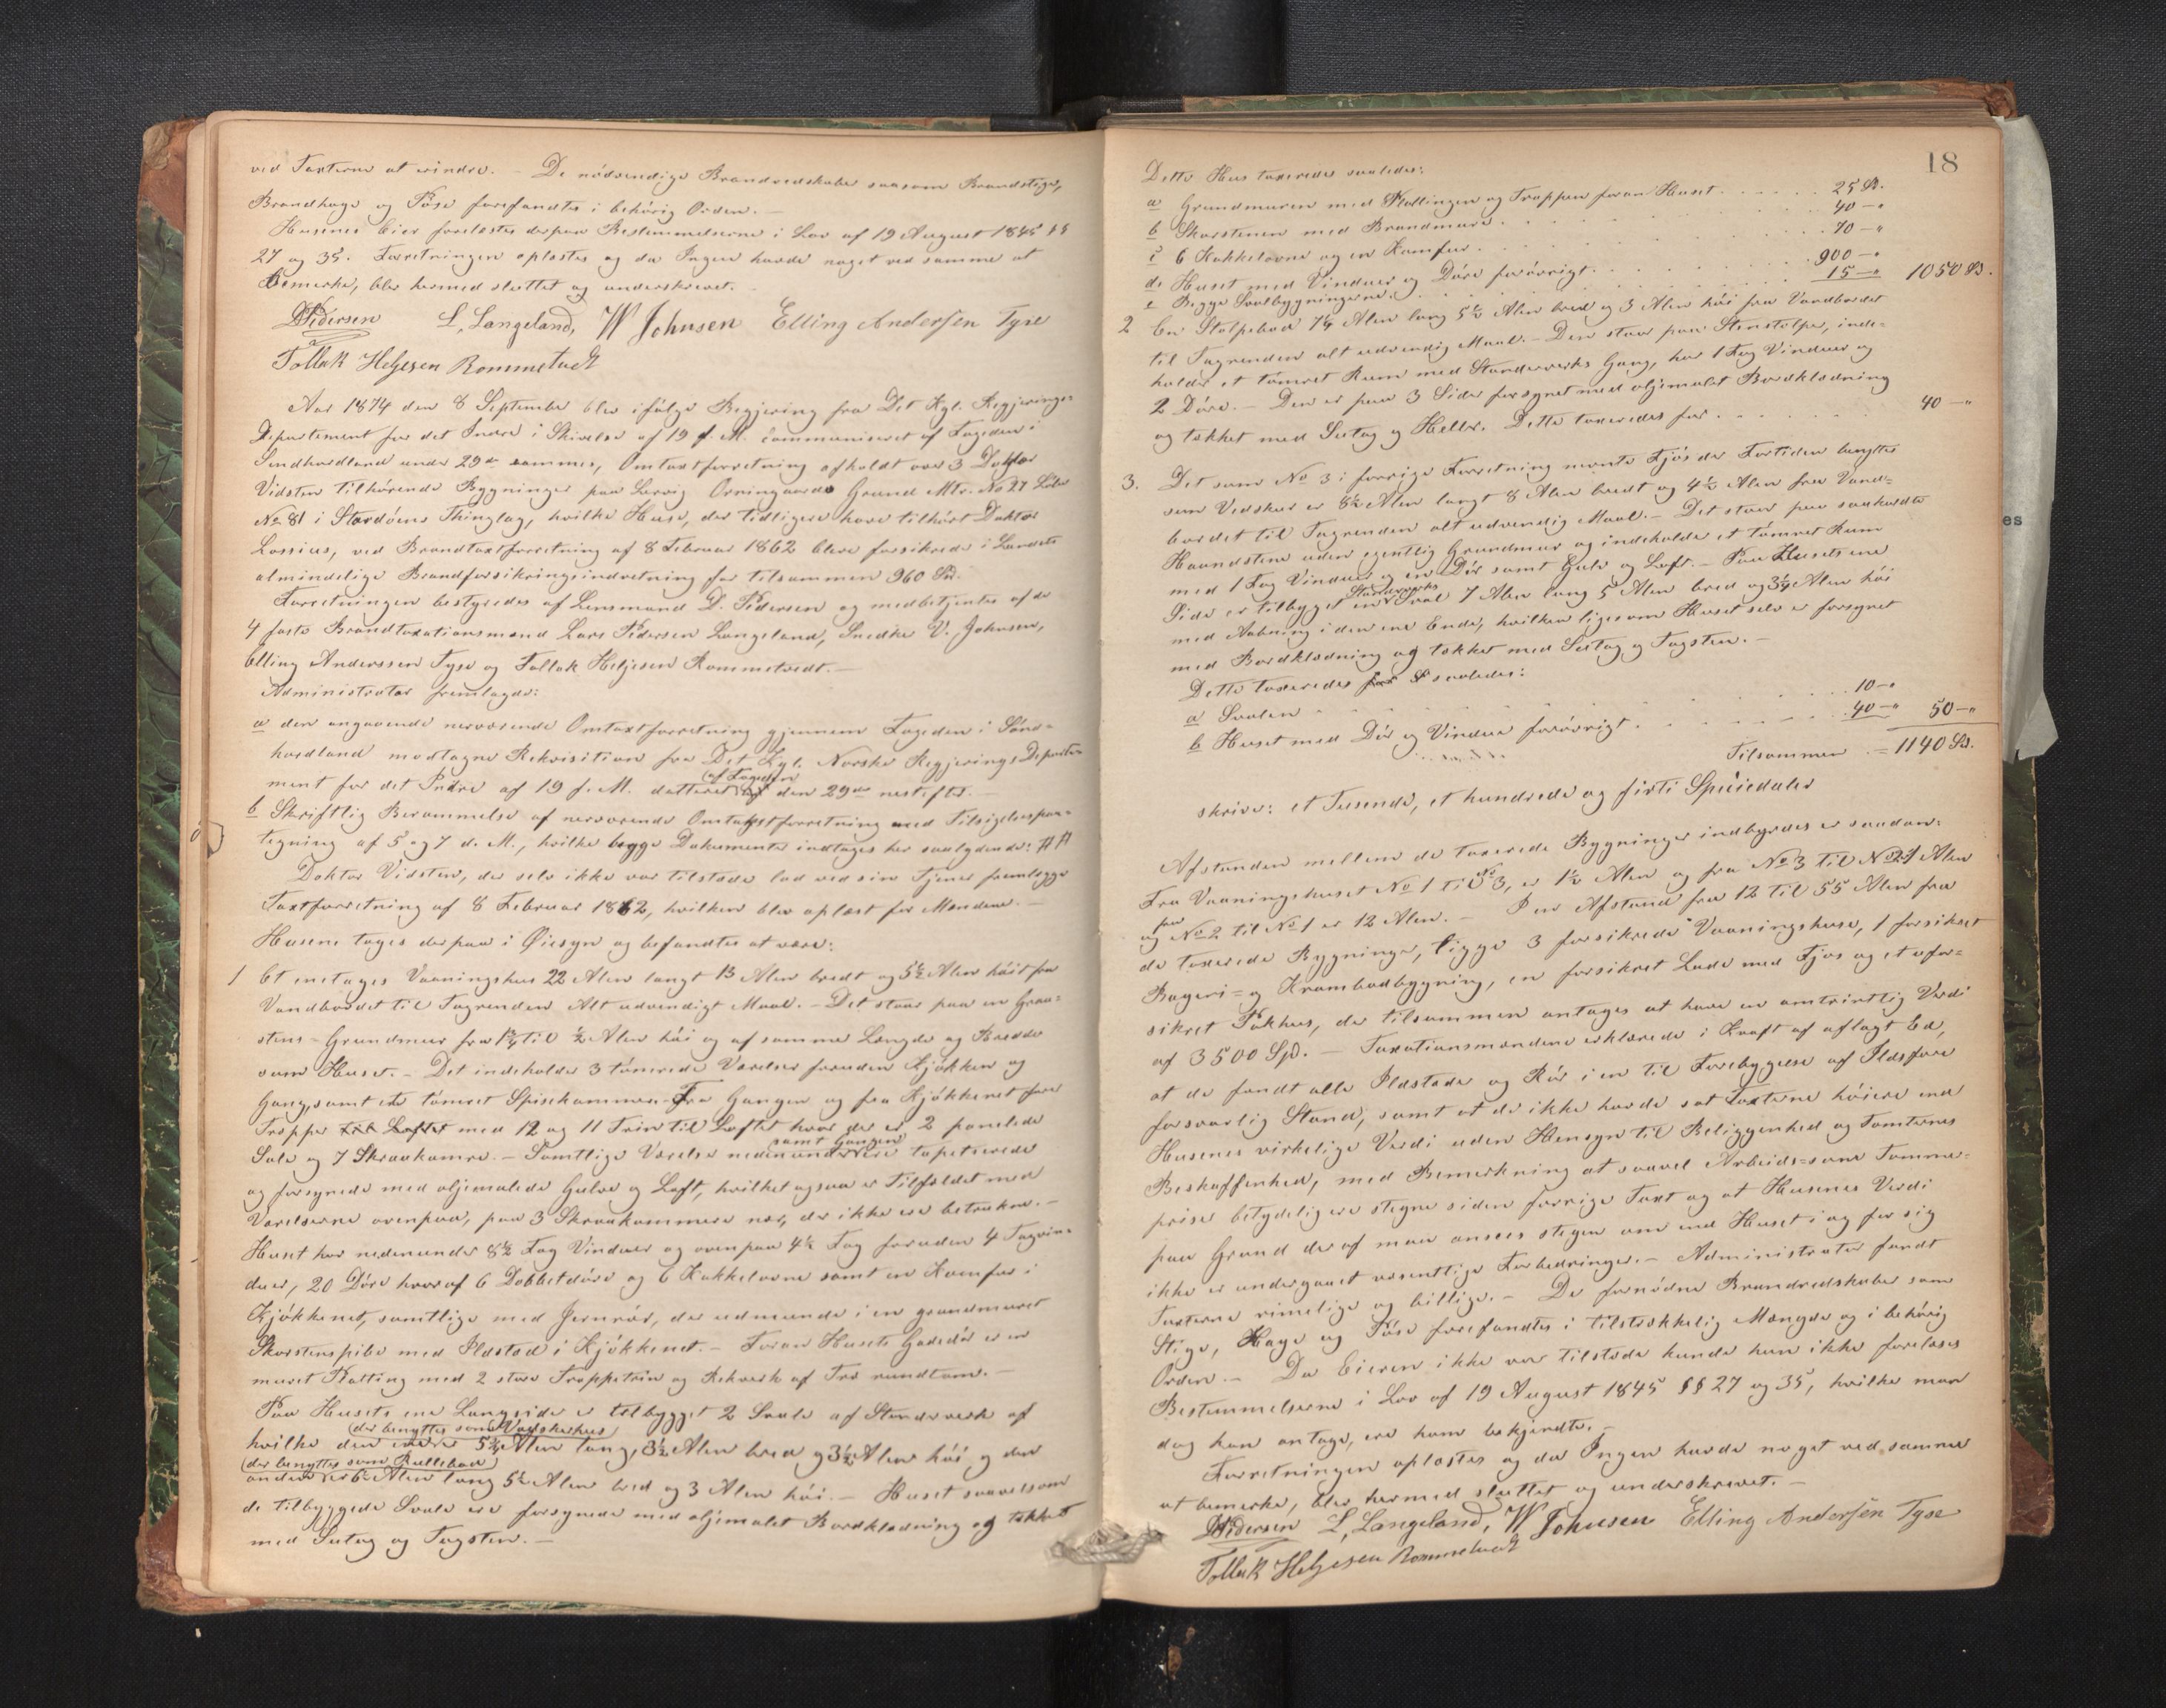 ved Taxterne at erindre. – De nödvendige Brandredskaber saasom Brandstige,
Brandhage og Pöse forefandtes i behörig Orden. –
Husenes Eier forelæstes derpaa Bestemmelserne i Lov af 19 August 1845 §§
27 og 35. Forretningen oplæstes og da Ingen havde noget ved samme at
bemærke, blev hermed sluttet og underskrevet.
DPedersen L. Langeland, W Johnsen Elling Andersen Tyse
Tollak Helgesen Rommetvedt
Aar 1874 den 8 September blev ifölge Begjering fra Det Kgl. Regjerings-
Departement for det Indre i Skrivelse af 19 f. M. communiseret af Fogden i
Söndhordland under 29de sammes, Omtaxtforretning afholdt over 3 Doktor
Vidsten tilhörende Bygninger paa Lervig Örningaards Grund Mtr. No 27 Löbe
No 81 i Stordöens Thinglag, hvilke Huse, der tidligere have tilhört Doktor
Lossius, ved Brandtaxtforretning af 8 Februar 1862 bleve forsikrede i Landets
almindelige Brandforsikringsindretning for tilsammen 960 Spd.
Forretningen bestyredes af Lensmand D. Pedersen og medbetjentes af de
4 faste Brandtaxationsmænd Lars Pedersen Langeland, Snedker V. Johnsen,
Elling Anderssen Tyse og Tollak Heljesen Rommetvedt. –
Administrator fremlagde:
a den angaaende nærværende Omtaxtforretning gjennem Fogeden i Sönd-
hordland modtagne Rekvisition fra Det Kgl. Norske Regjerings Departe-
ment for det Indre af 19 f. M. datteret af Fogden den 29de næstefter. –
b Skriftlig Berammelse af nærværende Omtaxtforretning med Tilsigelsespaa-
tegning af 5 og 7 d. M., hvilke begge Dokumenter indtages her saalydende: ##
Doktor Vidsten, der selv ikke var tilstede lod ved sin Tjener fremlægge
Taxtforretning af 8 Februar 1862, hvilken blev oplæst for Mændene. –
Husene toges derpaa i Øiesyn og befandtes at være:
1 Et enetages Vaaningshus 22 Alen langt 13 Alen bredt og 5½ Alen höit fra
Vandbordet til Tagrenden Alt udvendigt Maal. – Det staar paa en Graa-
stens-Grundmuur fra 1¾ til ½ Alen höi og af samme Længde og Bredde
som Huset. – Det indeholder 3 tömrede Værelser foruden Kjökken og
Gang, samt et tömret Spisekammer. – Fra Gangen og fra Kjökkenet före
Trapper til Loftet med 12 og 11 Trin til Loftet hvor der er 2 panelede
Sale og 7 Skraakamre. – Samtlige Værelser nedenunder samt Gangen ere tapetserede
og forsynede med oljemalede Gulve og Loft, hvilket ogsaa er Tilfældet med
Værelserne ovenpaa, paa 3 Skraakammere nær, der ikke ere betrukne. –
Huset har nedenunder 8½ Fag Vinduer og ovenpaa 4½ Fag foruden 4 Tagvin-
duer, 20 Döre hvoraf 6 Dobbeltdöre og 6 Kakkelovne samt en Komfur i
Kjökkenet, samtlige med Jernrör, der udmunde i en grundmuret
Skorstenspibe med Ildsted i Kjökkenet. – Foran Husets Gadedör er en
muret Platting med 2 store Trappetrin og Rekværk af Træ rundtom. –
Paa Husets ene Langside er tilbygget 2 Svale af Stenderverk af
hvilke den ene der benyttes som Vadskerhus er 5¾ Alen lang, 3½ Alen bred og 3½ Alen höi og den
anden der benyttes som Rullebod er 6½ Alen lang 5½ Alen bred og 3 Alen höi. – Huset saavelsom
de tilbyggede Svale ere forsynede med oljemalet Bordklædning og tækket
med Sutag og Tagsten. –
18
Dette Hus taxeredes saaledes:
a Grundmuren med Plattingen og Trappen foran Huset . . . . . 25 Sp.
b Skorstenen med Brandmure . . . . . 40 – "
c 6 Kakkelovne og en Komfur . . . . . 70 – "
d Huset med Vinduer og Döre forövrigt . . . . . 900 – "
e Begge Svalbygningerne . . . . . 15 – " 1050 Sp.
2 En Stolpebod 7¼ Alen lang 5½ Alen bred og 3 Alen höi fra Vandbordet
til Tagrenden alt udvendig Maal. – Den staar paa Stenstolper, inde-
holder et tömret Rum med Stenderverks Gang, har 1 Fag Vinduer og
2 Döre. – Den er paa 3 Sider forsynet med oljemalet Bordklædning
og tækket med Sutag og Heller. Dette taxeredes for . . . . . 40 – "
3. Det som No 3 i forrige Forretning nævnte Fjös der Fortiden benyttes
som Vedskur er 8½ Alen langt 8 Alen bredt og 4½ Alen fra Vand-
bordet til Tagrenden alt udvendig Maal. – Det staar paa saakaldte
Haandstene uden egentlig Grundmur og indeholder et tömret Rum
med 1 Fag Vinduer og en Dör samt Gulv og Loft. – Paa Husets ene
Side er tilbygget en Stenderverks Sval 7 Alen lang 5 Alen bred og 3¼ Alen höi
med Aabning i den ene Ende, hvilken ligesom Huset selv er forsynet
med Bordklædning og tækket med Sutag og Tagsten. –
Dette taxeredes for S saaledes:
a Svalen . . . . . 10 – "
b Huset med Dör og Vindue forövrigt . . . . . 40 – " 50 – "
Tilsammen . = 1140 Sp.
skriver: et Tusende, et hundrede og firti Speciedaler
Afstanden mellem de taxerede Bygninger indbyrdes er saadan:
Fra Vaaningshuset No 1 til No 3, er 1½ Alen og fra No 3 til No 2 Alen
og fra No 2 til No 1 er 12 Alen. – I en Afstand fra 12 til 55 Alen fra
de taxerede Bygninger, ligge 3 forsikrede Vaaningshuse, 1 forsikret
Bageri- og Krambodbygning, en forsikret Lade med Fjös og et ufor-
sikret Pakhus, der tilsammen antages at have en omtrintlig Verdi
af 3500 Spd. – Taxationsmændene erklærede i Kraft af aflagt Ed,
at de fandt alle Ildstede og Rör i en til Forebyggelse af Ildsfare
forsvarlig Stand, samt at de ikke havde sat Taxterne höiere end
Husenes virkelige Verdi uden Hensyn til Beliggenhed og Tomternes
Beskaffenhed, med Bemerkning at saavel Arbeids- som Tommer-
priser betydelig ere stegne siden forrige Taxt og at Husenes Verdi
paa Grund deraf maa ansees stegen om end Huset i og for sig
ikke er undergaaet væsentlige Forbedringer. – Administrator fandt
Taxterne rimelige og billige. – De fornödne Brandredskaber som
Stige, Hage og Pöse forefandtes i tilstrækkelig Mængde og i behörig
Orden. – Da Eieren ikke var tilstede kunde han ikke forelæses
Bestemmelserne i Lov af 19 August 1845 §§ 27 og 35, hvilke man
dog kan antage, ere ham bekjendte. –
Forretningen oplæstes og da Ingen havde noget ved samme
at bemerke, blev hermed sluttet og underskrevet. –
DPedersen L. Langeland, W Johnsen Elling Andersen Tyse
Tollak Helgesen Rommetvedt
es